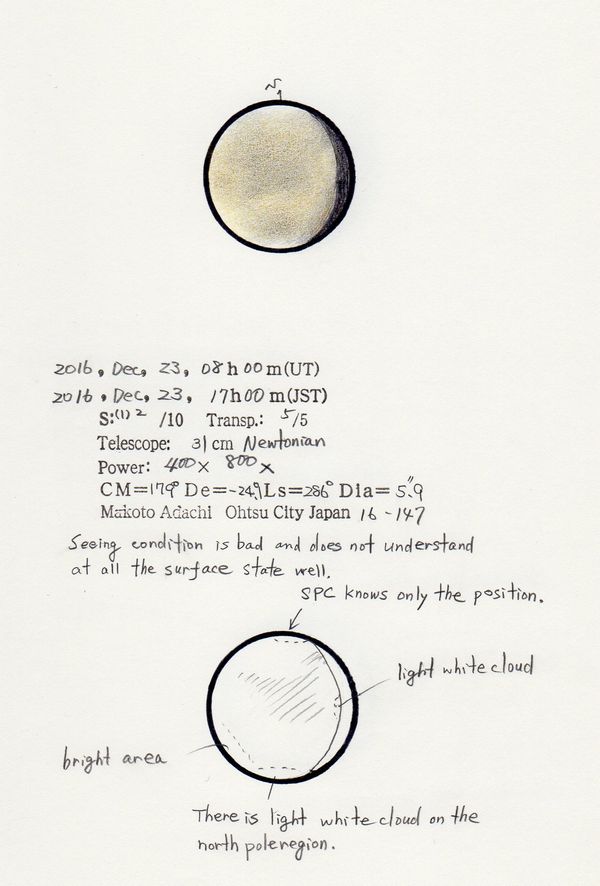 N
2016, Dec, 23, 08h00m(UT)
2016, Dec, 23, 17h00m(JST)
S:(1) 2 /10 Transp.: 5/5
Telescope: 31cm Newtonian
Power: 400× 800×
CM=179° De=-24.9 Ls=286° Dia= 5".9
Makoto Adachi Ohtsu City Japan 16-147
Seeing condition is bad and does not understand
at all the surface state well.
SPC knows only the position.
light white cloud
bright area
There is light white cloud on the
north pole region.